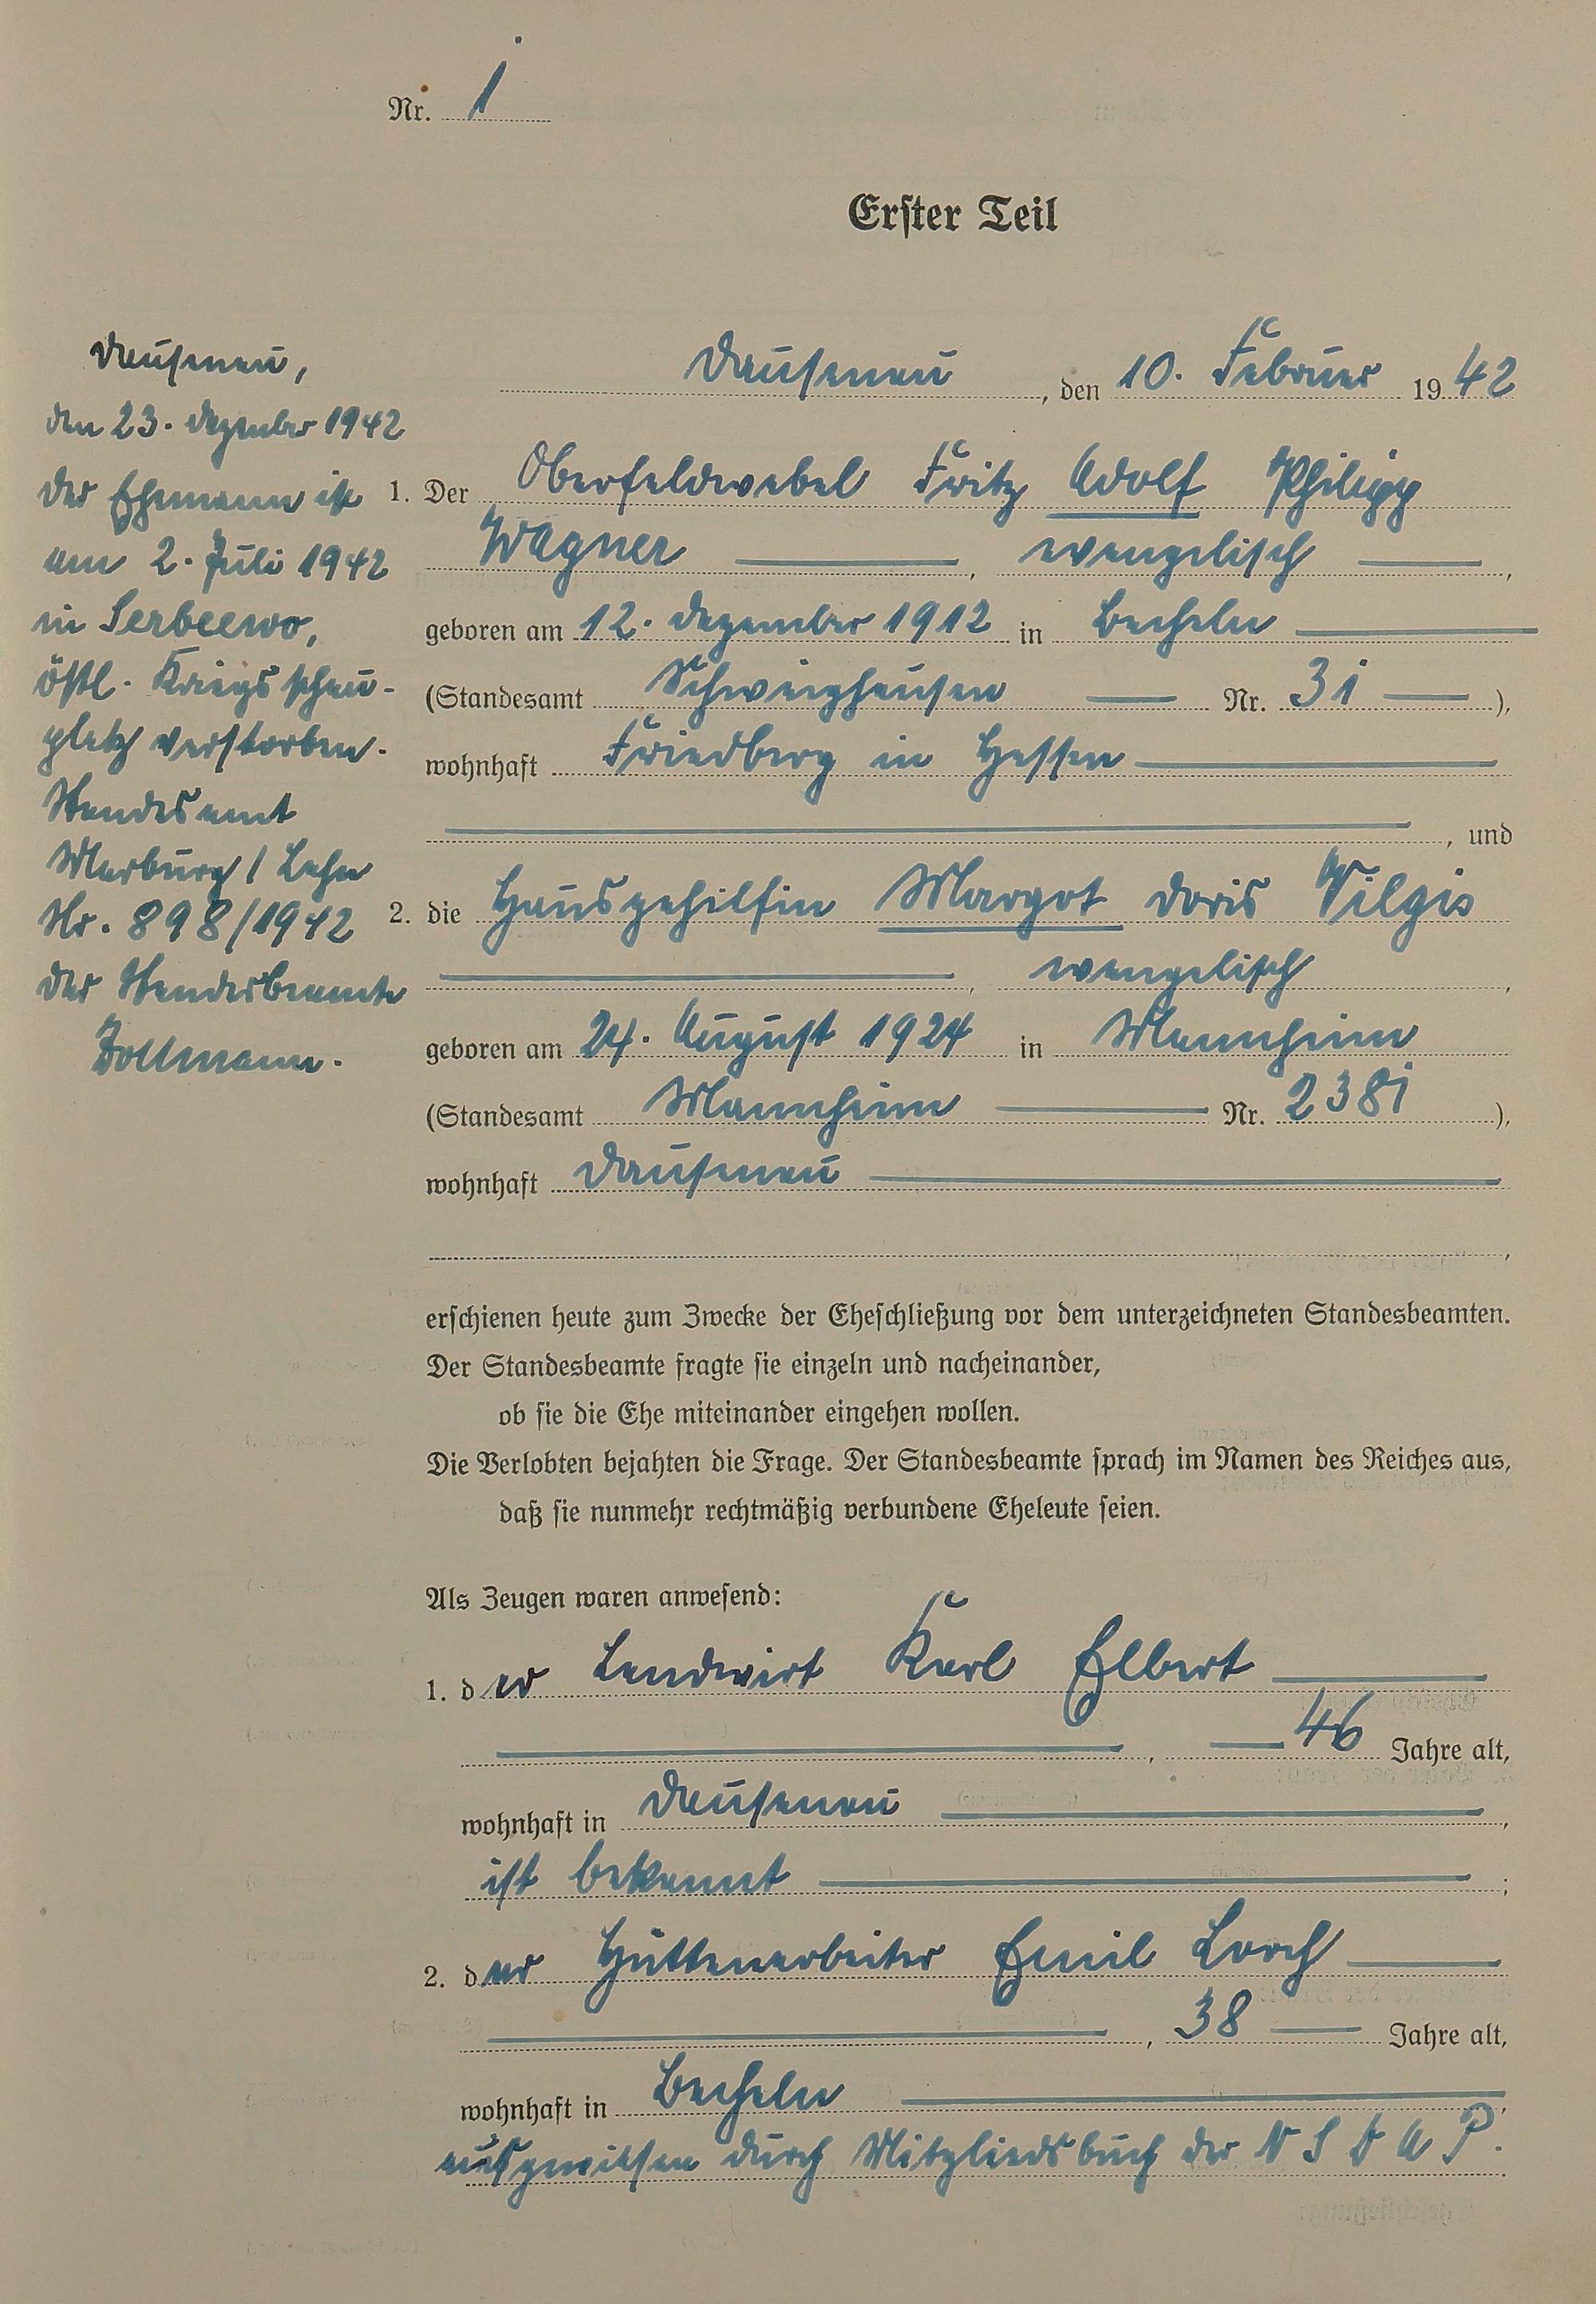 Nr. 1
Erster Teil
Dausenau,
den 23. Dezember 1942
Der Ehemann ist
am 2. Juli 1942
in Serbeewo,
östl. Kriegsschau-
platz verstorben.
Standesamt
Marburg / Lahn
Nr. 898/1942
Der Standesbeamte
Zollmann.
Dausenau, den 10. Februar 1942
1. Der Oberfeldwebel Fritz Adolf Philipp
Wagner, evangelisch,
geboren am 12. Dezember 1912 in Becheln
(Standesamt Schweighausen Nr. 31),
wohnhaft Friedberg in Hessen
, und
2. die Hausgehilfin Margot Doris Vilgis
, evangelisch,
geboren am 24. August 1924 in Mannheim
(Standesamt Mannheim Nr. 2381),
wohnhaft Dausenau
,
erschienen heute zum Zwecke der Eheschließung vor dem unterzeichneten Standesbeamten.
Der Standesbeamte fragte sie einzeln und nacheinander,
ob sie die Ehe miteinander eingehen wollen.
Die Verlobten bejahten die Frage. Der Standesbeamte sprach im Namen des Reiches aus,
daß sie nunmehr rechtmäßig verbundene Eheleute seien.
Als Zeugen waren anwesend:
1. der Landwirt Karl Elbert
, 46 Jahre alt,
wohnhaft in Dausenau,
ist bekannt;
2. der Hüttenarbeiter Emil Lorch
, 38 Jahre alt,
wohnhaft in Becheln,
ausgewiesen durch Mitgliedsbuch der N S D A P.